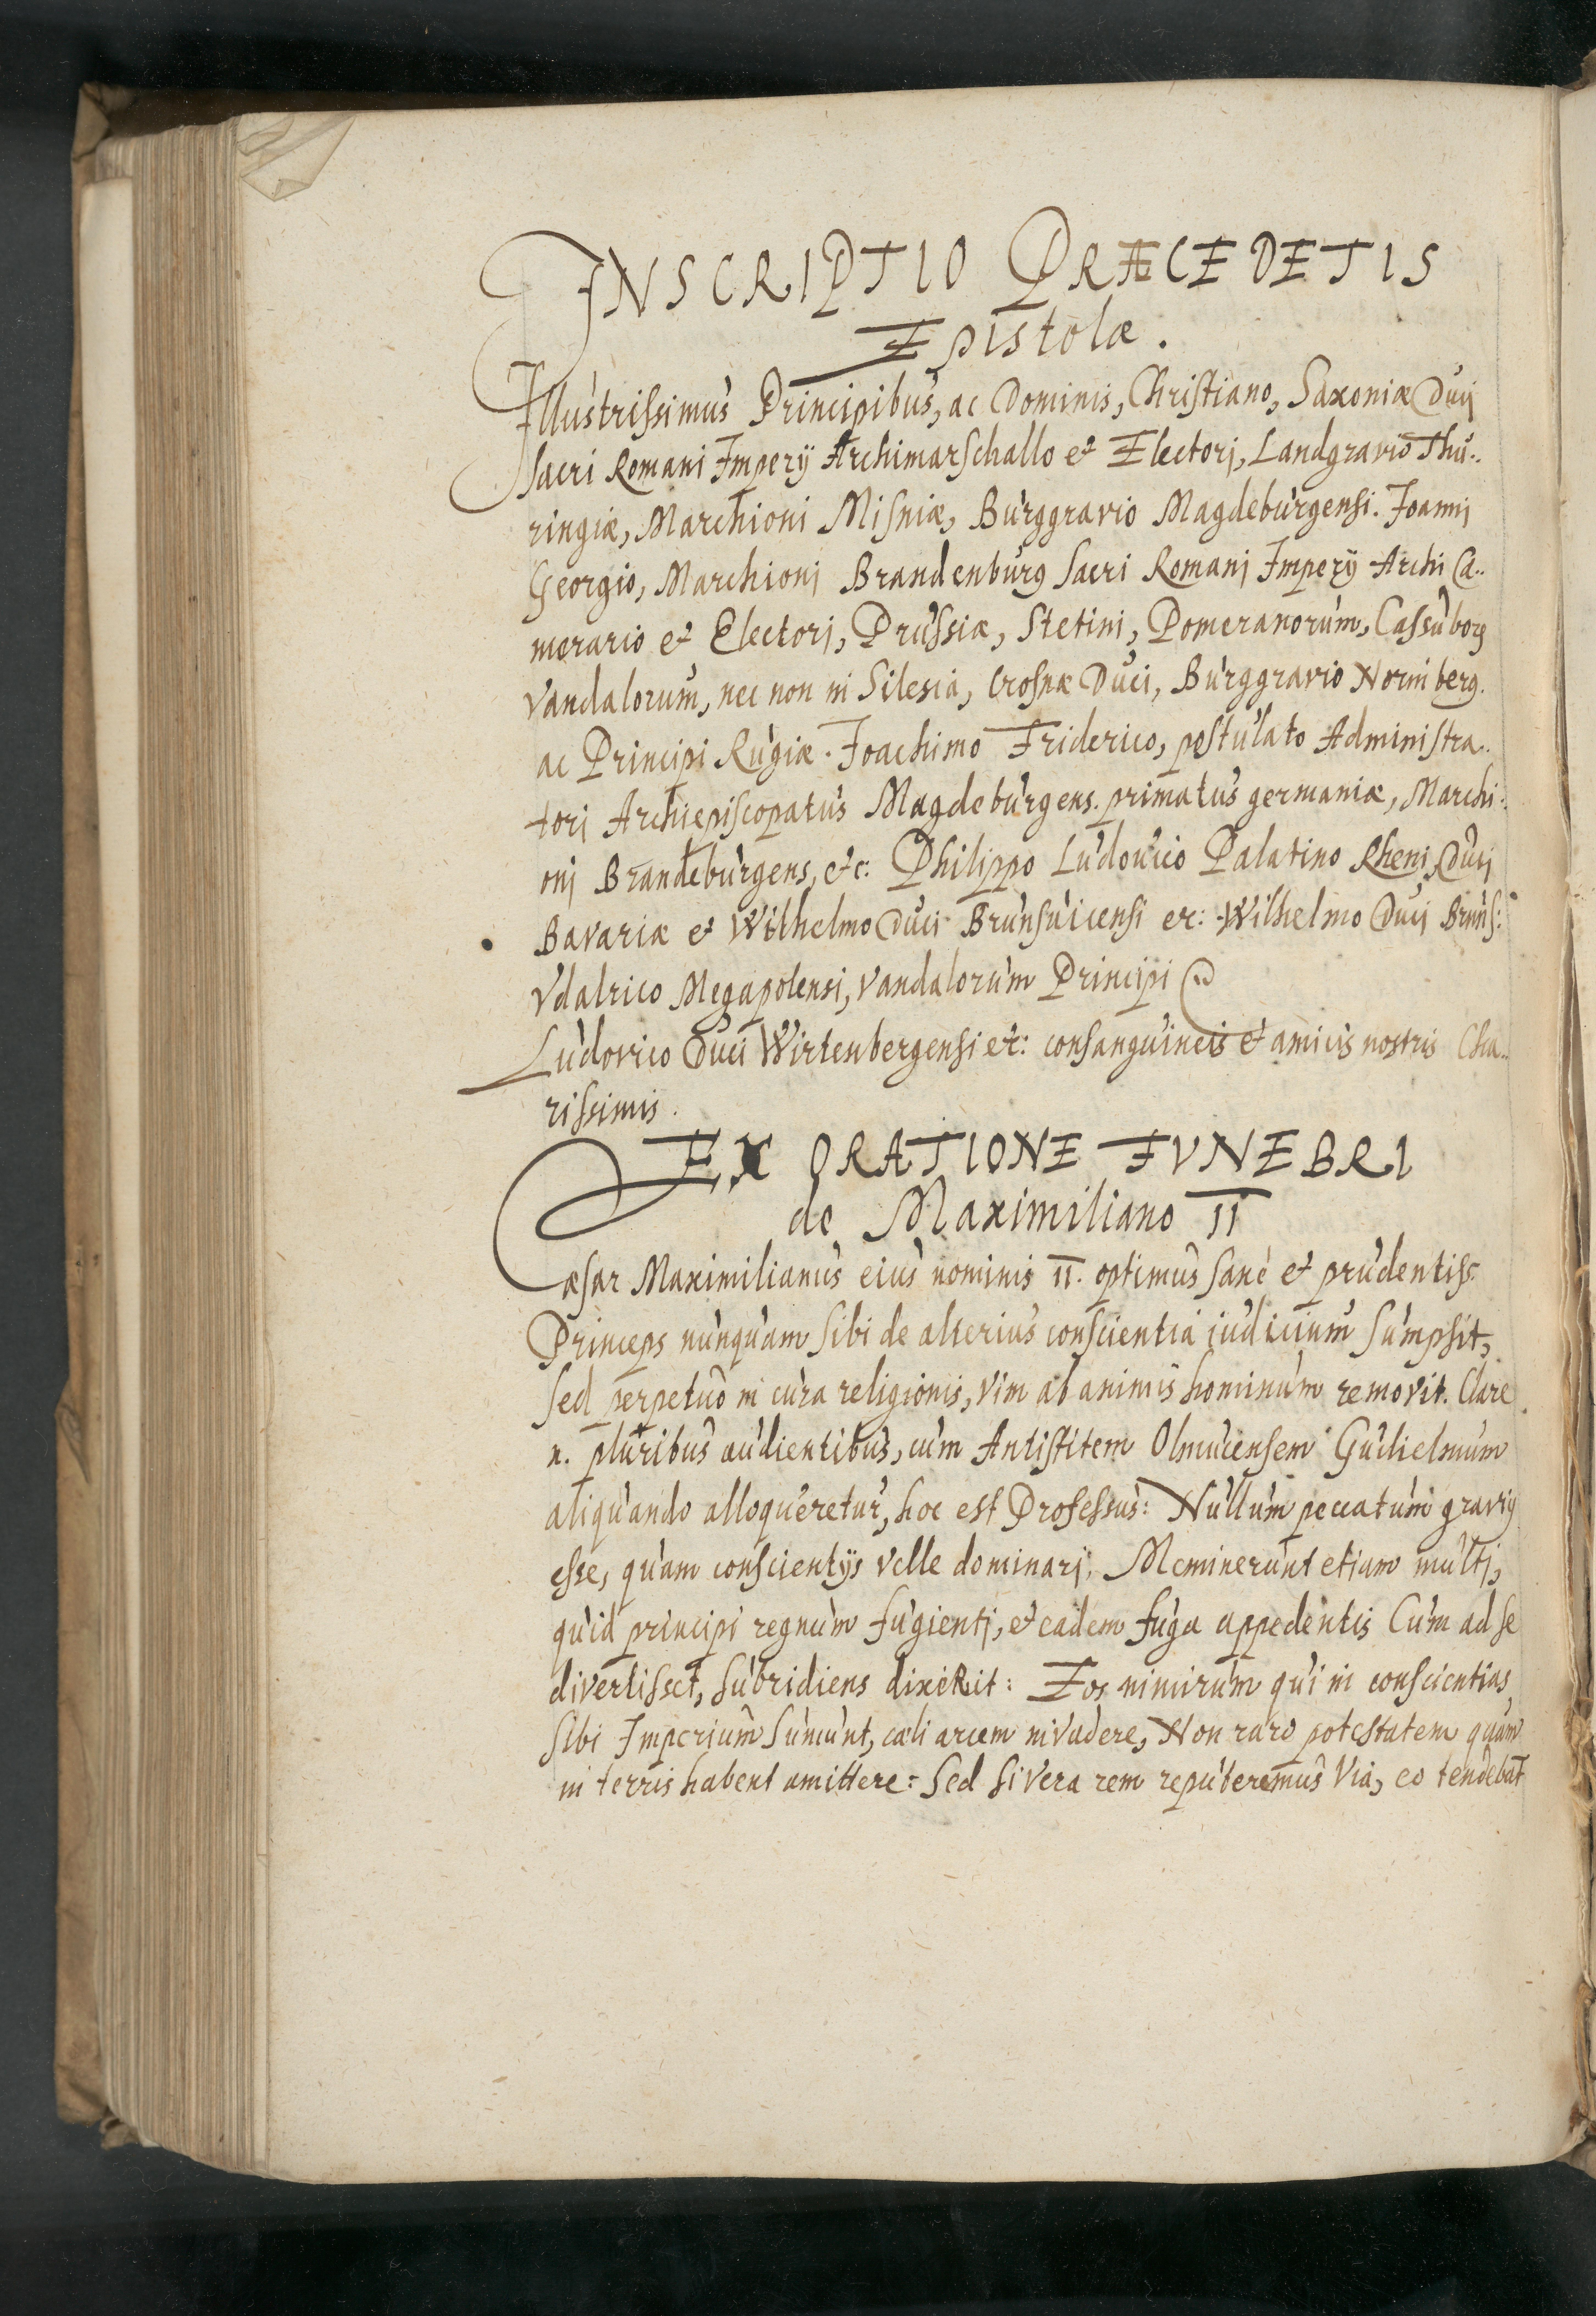 INSCRIPTIO PRÆCEDETIS
Epistolæ.
Illustrissimus Principibus, ac Dominis, Christiano, Saxoniæ Ducj
sacri Romani Imperij Archimarschallo et Electorj, Landgravio Thu..
ringiæ, Marchioni Misniæ, Burggravio Magdeburgensi. Joannj
Georgio, Marchionj Brandenburg sacri Romanj Imperij Archi Ca..
merario et Electorj, Prussiæ, Stetini, Pomeranorum, Cassuborꝝ
Vandalorum, nec non in Silesia, Crosnæ Duci, Burggravio Norinberg.
ac Principi Rugiæ. Joachimo Friderico, postulato Administra..
torj Archiepiscopatus Magdeburgens. primatus germaniæ, Marchi..
onj Brandeburgens, etc: Philippo Ludovico Palatino Rheni Ducj
Bavariæ et Wilhelmo Duci Brunsuicensi etc: Wilhelmo Ducj Bruns:
Vdalrico Megapolensi, Vandalorum Principi
Ludovico Duci Wirtenbergensi etc: consanguineis et amicis nostris Cha..
rissimis.
EX ORATIONE FVNEBRI
de Maximiliano II
Cæsar Maximilianus eius nominis II. optimus sanè et prudentiss.
Princeps nunquam sibi de alterius conscientia iudicium sumpsit,
sed perpetuò in cura religionis, vim ab animis hominum removit. Clare
n. pluribus audientibus, cum Antistitem Olmucensem Guilielmum
aliquando alloqueretur, hoc est Professus: Nullum peccatum gravi9
esse, quam conscientijs velle dominarj. Meminerunt etiam multj,
quid principi regnum fugientj, et eadem fuga appedentis Cum ad se
divertisset, subridiens dixeRit: Eos nimirum qui in conscientias
sibi Imperium sumunt, cæli arcem invadere, Non raro potestatem quam
in terris habent amittere: Sed si vera rem reputeremus Via, eo tendebat